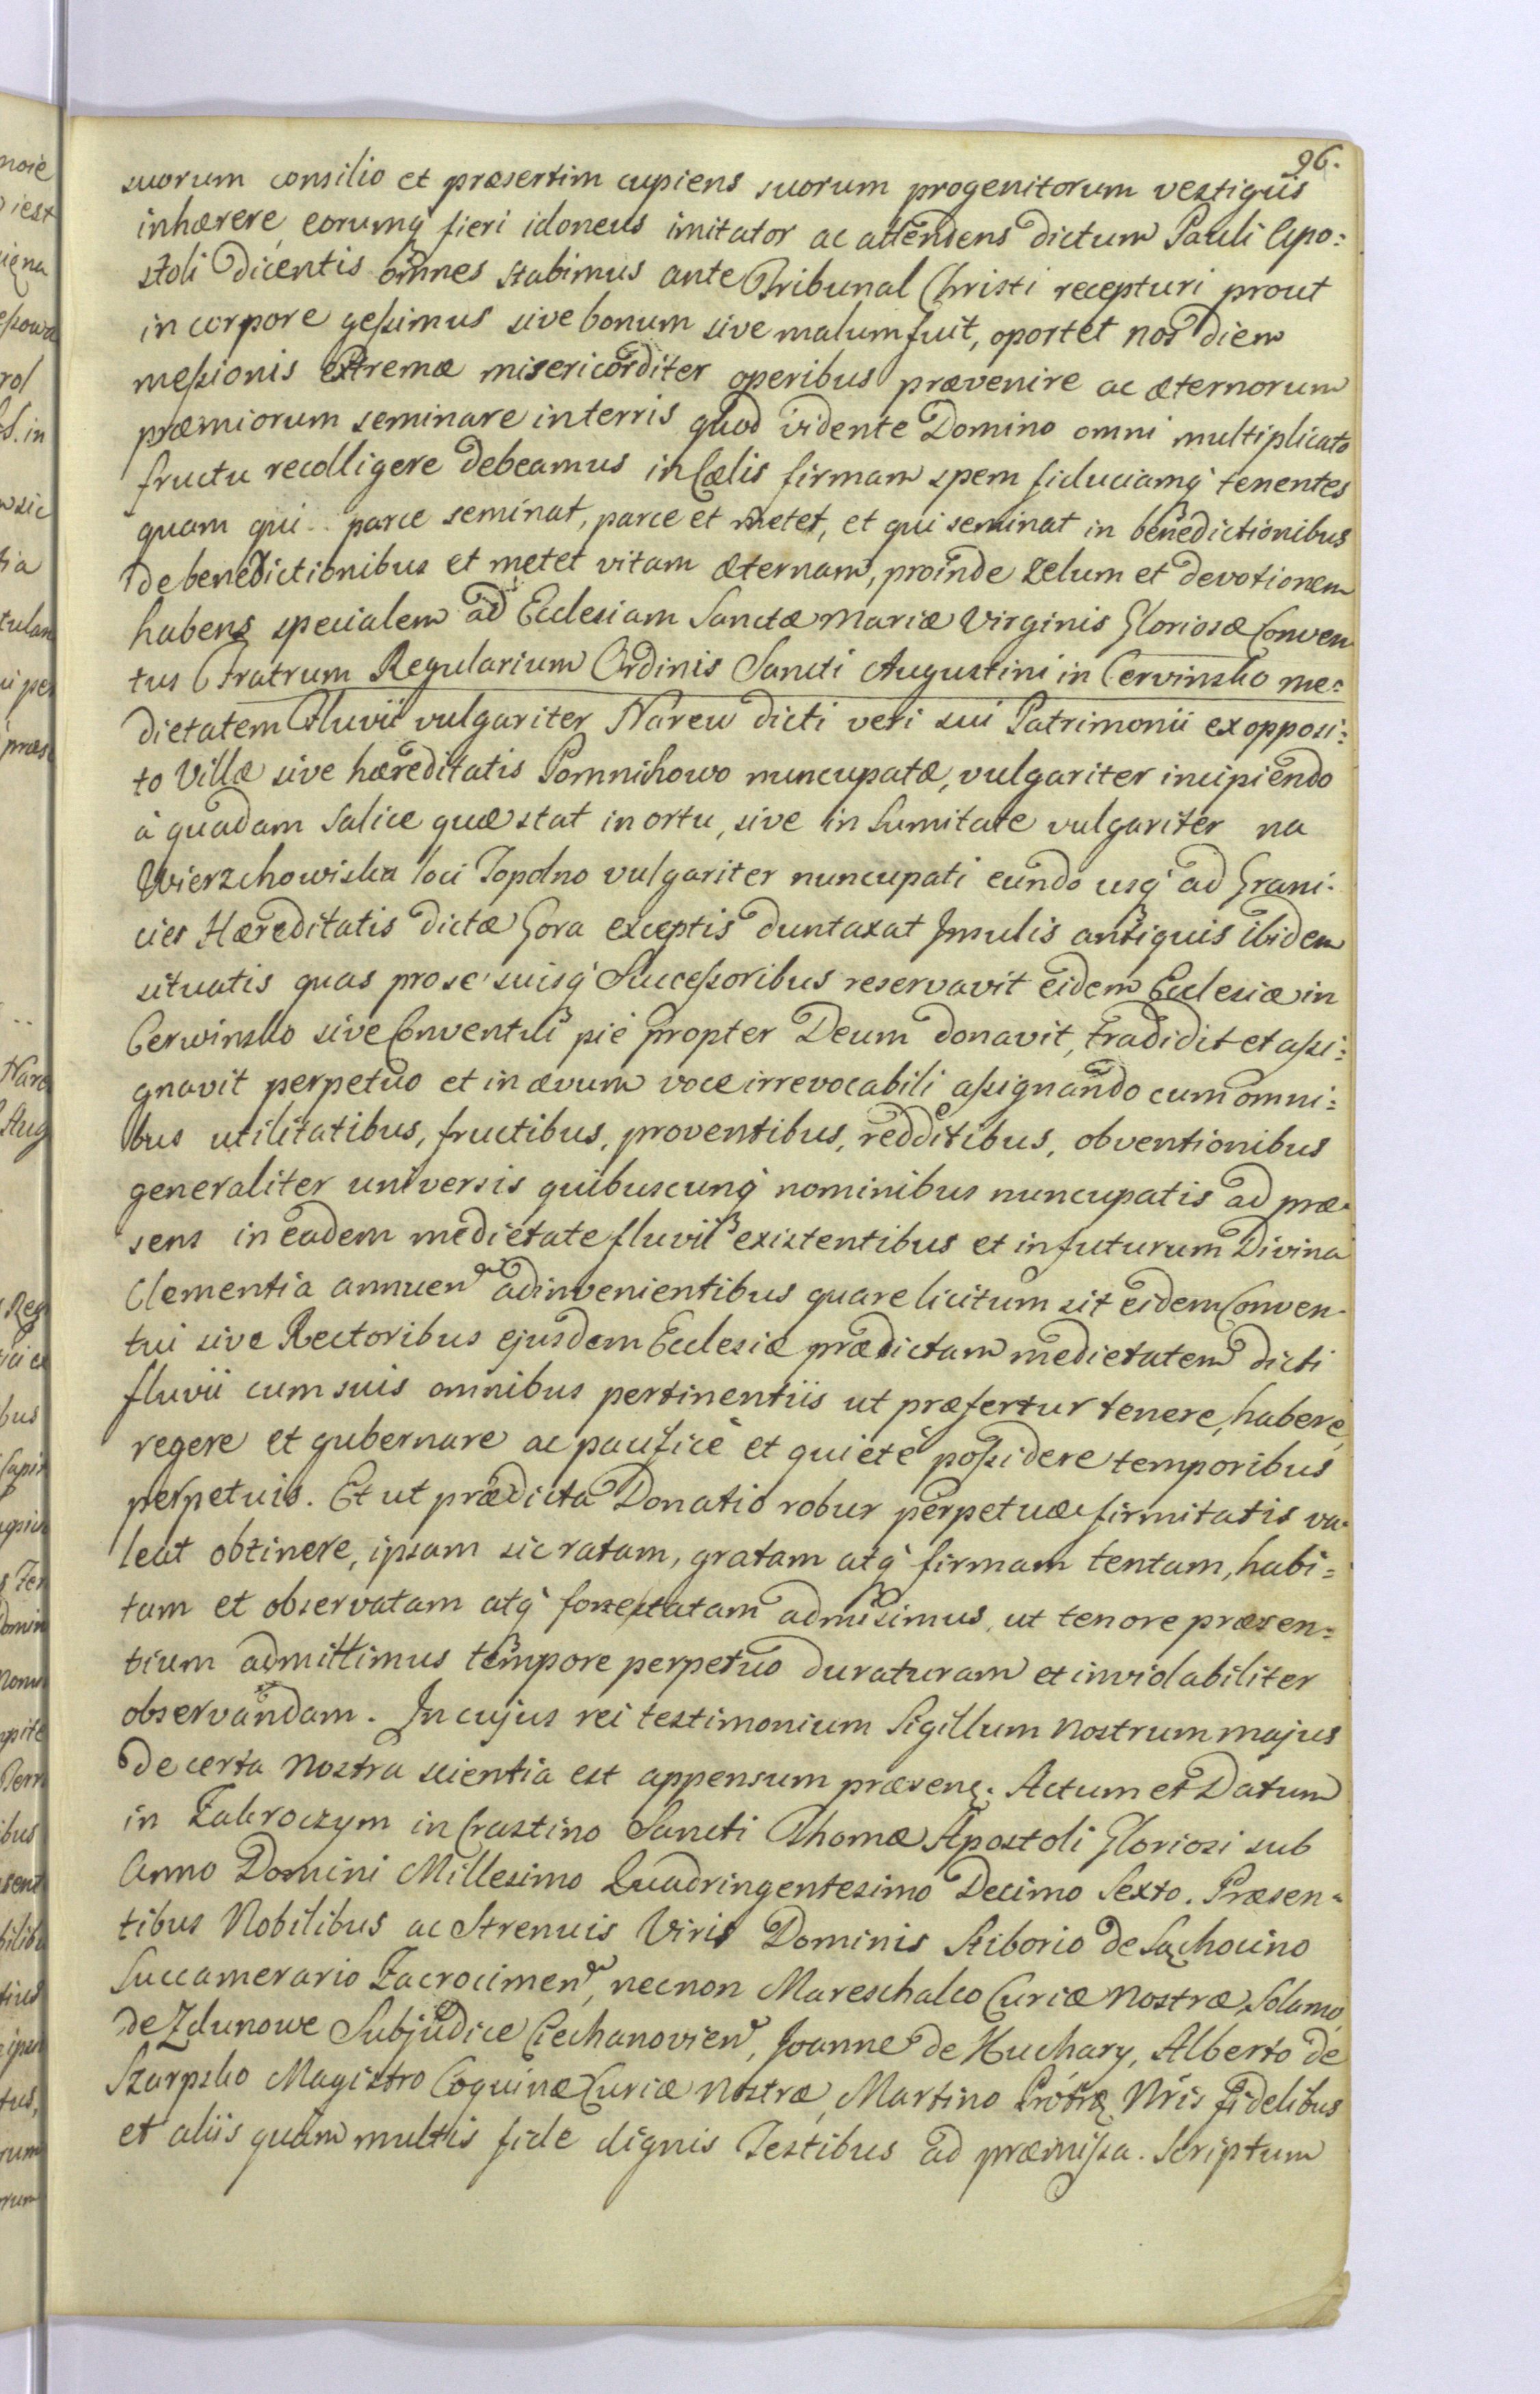 96.
suorum consilio et præsertim cupiens suorum progenitorum vestigiis
inhærere, eorumq́ fieri idoneus imitator ac attendens dictum Pauli Apo:
stoli dicentis omnes stabimus ante Tribunal Christi recepturi prout
in corpore gessimus sive bonum sive malum fuit, oportet nos diem
messionis extremæ misericorditer operibus prævenire ac æternorum
præmiorum seminare in terris quod vidente Domino omni multiplicato
fructu recolligere debeamus in Cælis firmam spem fiduciamq́ tenentes
quam qui parce seminat, parce et metet, et qui seminat in benedictionibus
de benedictionibus et metet vitam æternam, proinde zelum et devotionem
habens specialem ad Ecclesiam Sanctæ Mariæ Virginis Gloriosæ Conven
tus Fratrum Regularium Ordinis Sancti Augustini in Cervinsko me:
dietatem Fluvii vulgariter Narew dicti veri sui Patrimonii ex opposi:
to Villæ sive hæreditatis Pomnichowo nuncupatæ, vulgariter incipiendo
à quadam Salice quæ stat in ortu, sive in Sumitate vulgariter na
Wierzchowiska loci Topolno vulgariter nuncupati eundo usq́ ad Grani:
cies Hæreditatis dictæ Gora exceptis duntaxat Insulis antiquis ibidem
situatis quas pro se suisq́ Successoribus reservavit eidem Ecclesiæ in
Cerwinsko sive Conventui piè propter Deum donavit, tradidit et assi:
gnavit perpetuo et in ævum voce irrevocabili assignando cum omni:
bus utilitatibus, fructibus, proventibus, redditibus, obventionibus
generaliter universis quibuscunq́ nominibus nuncupatis ad præ
sens in eadem medietate fluvii existentibus et in futurum Divina
Clementia annuen adinvenientibus quare licitum sit eidem Conven
tui sive Rectoribus ejusdem Ecclesiæ prædictam medietatem dicti
fluvii cum suis omnibus pertinentiis ut præfertur tenere, habere,
regere et gubernare ac pacificè et quietè possidere temporibus
perpetuis. Et ut prædicta Donatio robur perpetuæ firmitatis va
leat obtinere, ipsam sic ratam, gratam atq́ firmam tentam, habi=
tam et observatam atq́ admisimus, ut tenore præsen=
tium admittimus tempore perpetuo duraturam et inviolabiliter
observandam. In cujus rei testimonium Sigillum nostrum majus
de certa nostra scientia est appensum præsen. Actum et Datum
in Zakroczym in Crastino Sancti Thomæ Apostoli Gloriosi sub
Anno Domini Millesimo Quadringentesimo Decimo Sexto. Præsen=
tibus Nobilibus ac Strenuis Viris Dominis Stiborio de Sąchocino
Succamerario Zacrocimen, necnon Mareschalco Curiæ nostræ, Solamo
de Zdunowe Subjudice Ciechanovien, Joanne de Kuchary, Alberto de
Szarpsko Magistro Coquinæ Curiæ nostræ, Martino Nr̃is fidelibus
et aliis quam multis fide dignis Testibus ad præmissa. Scriptum